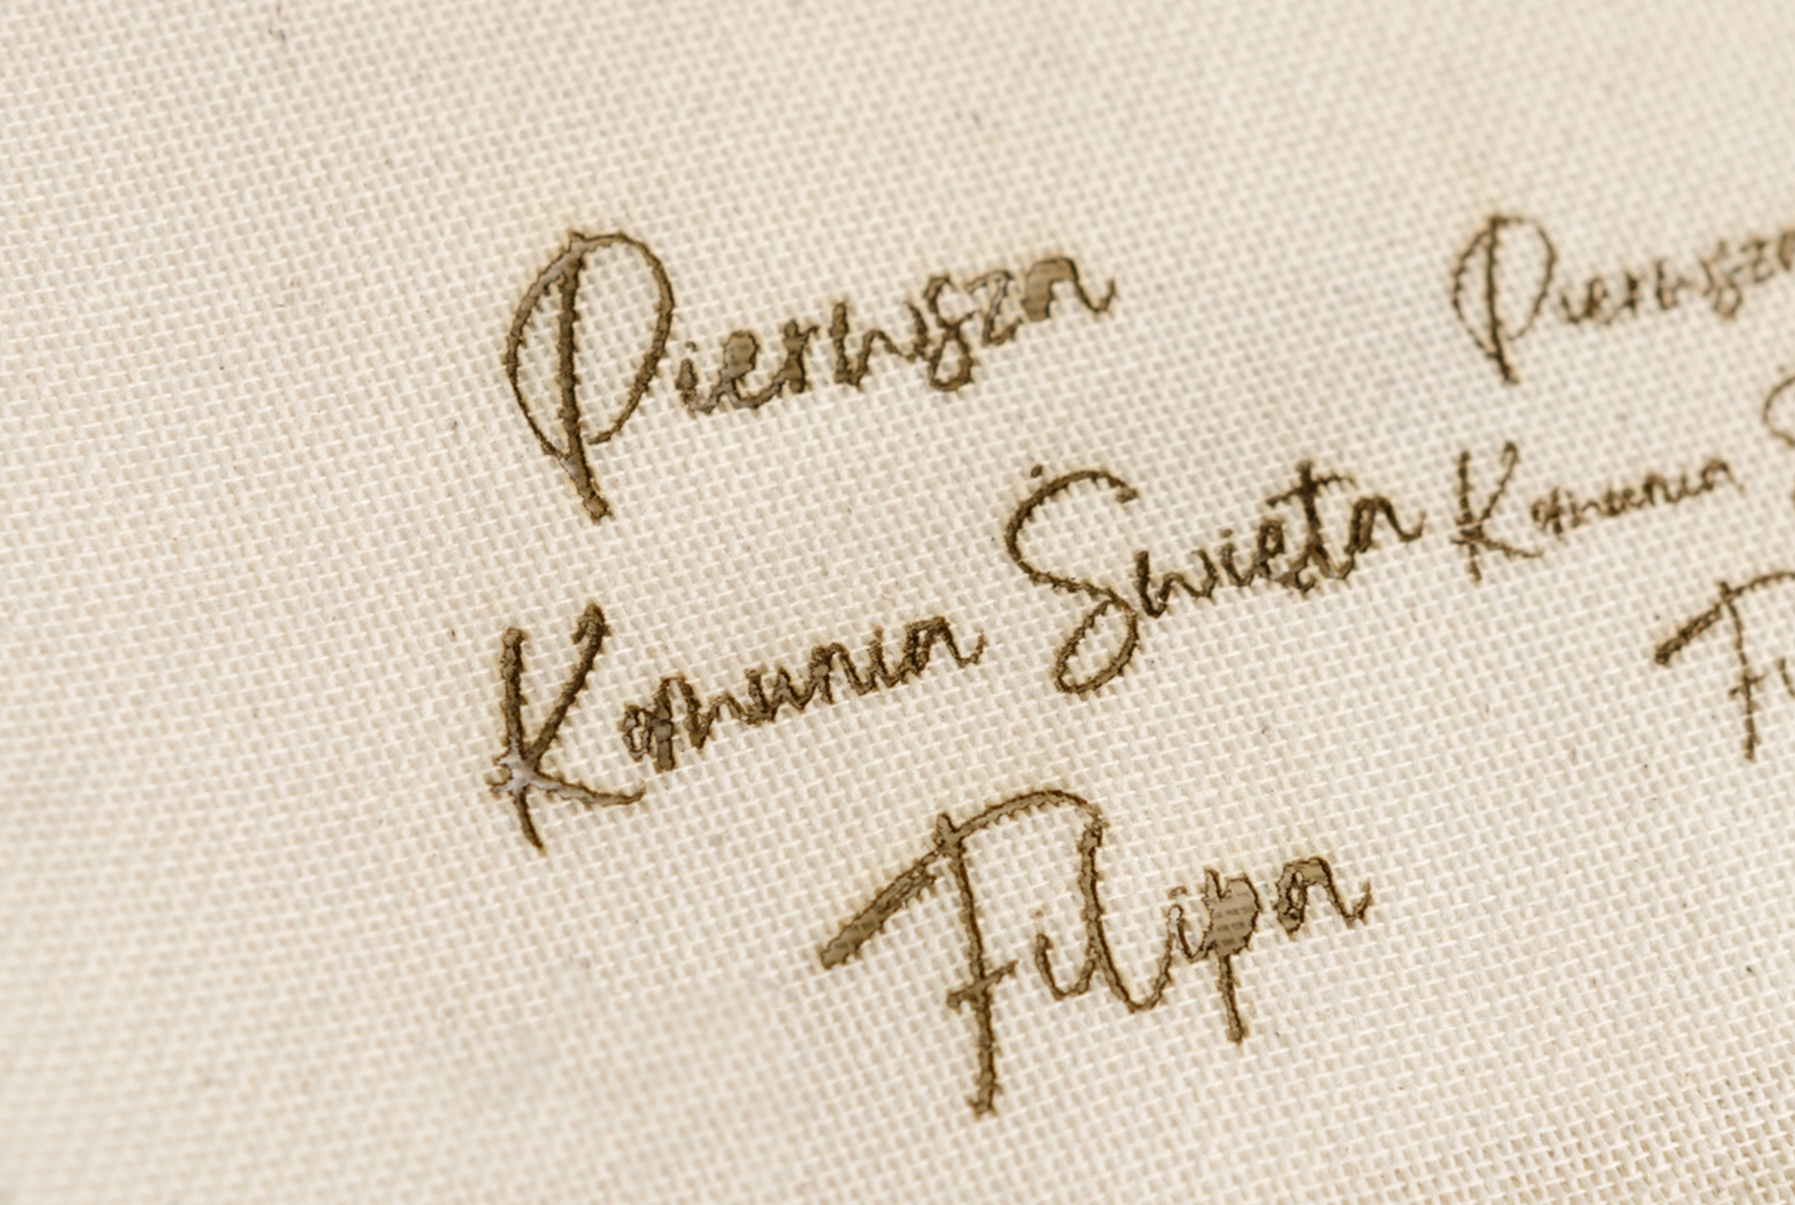 Pierwsza
Komunia Święta
Filipa
Pierwsza
Komunia